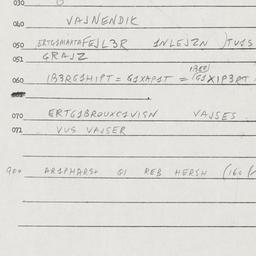 030
040 VAJNENDIK
050 ERTG1MAATAFEJL3R 1NLEJZN )TU1S
051 GRAJZ
060 1B3RG1HIPT = G1XAP1T = (G1XIP3RT
070 ERTG1BROUXC1VISN VAJSES
071 VUS VAJSER
900 G1 REB HERSH